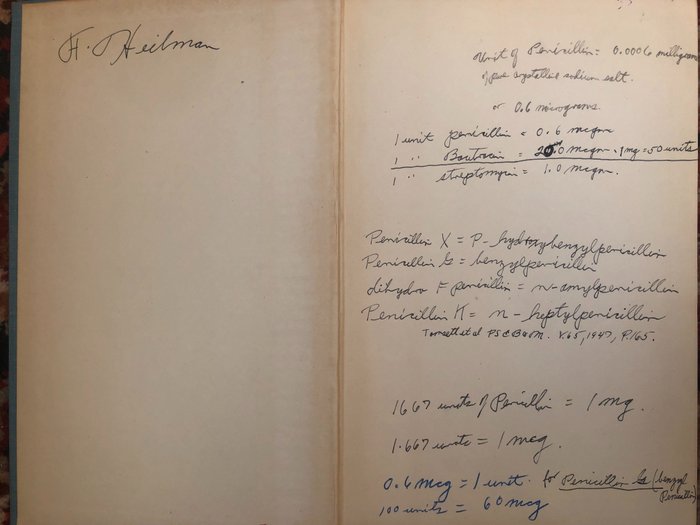 F. Heilman
Unit of Penicillin = 0.0006 milligrams
of pure crystalline sodium salt.
or 0.6 micrograms
1 unit penicillin = 0.6 mcgm
1 " Bacitracin = 20.0 mcgm. 1 mg = 50 units
1 " streptomycin = 1.0 mcgm.
Penicillin X = P-hydroxybenzylpenicillin
Penicillin G = benzylpenicillin
dihydro F penicillin = n-amylpenicillin
Penicillin K = n-heptylpenicillin
et al PSEB&M. V.65, 1947, P.165.
1667 units of Penicillin = 1 mg.
1.667 units = 1 mcg.
0.6 mcg = 1 unit. for Penicillin G (benzyl
Penicillin)
100 units = 60 mcg